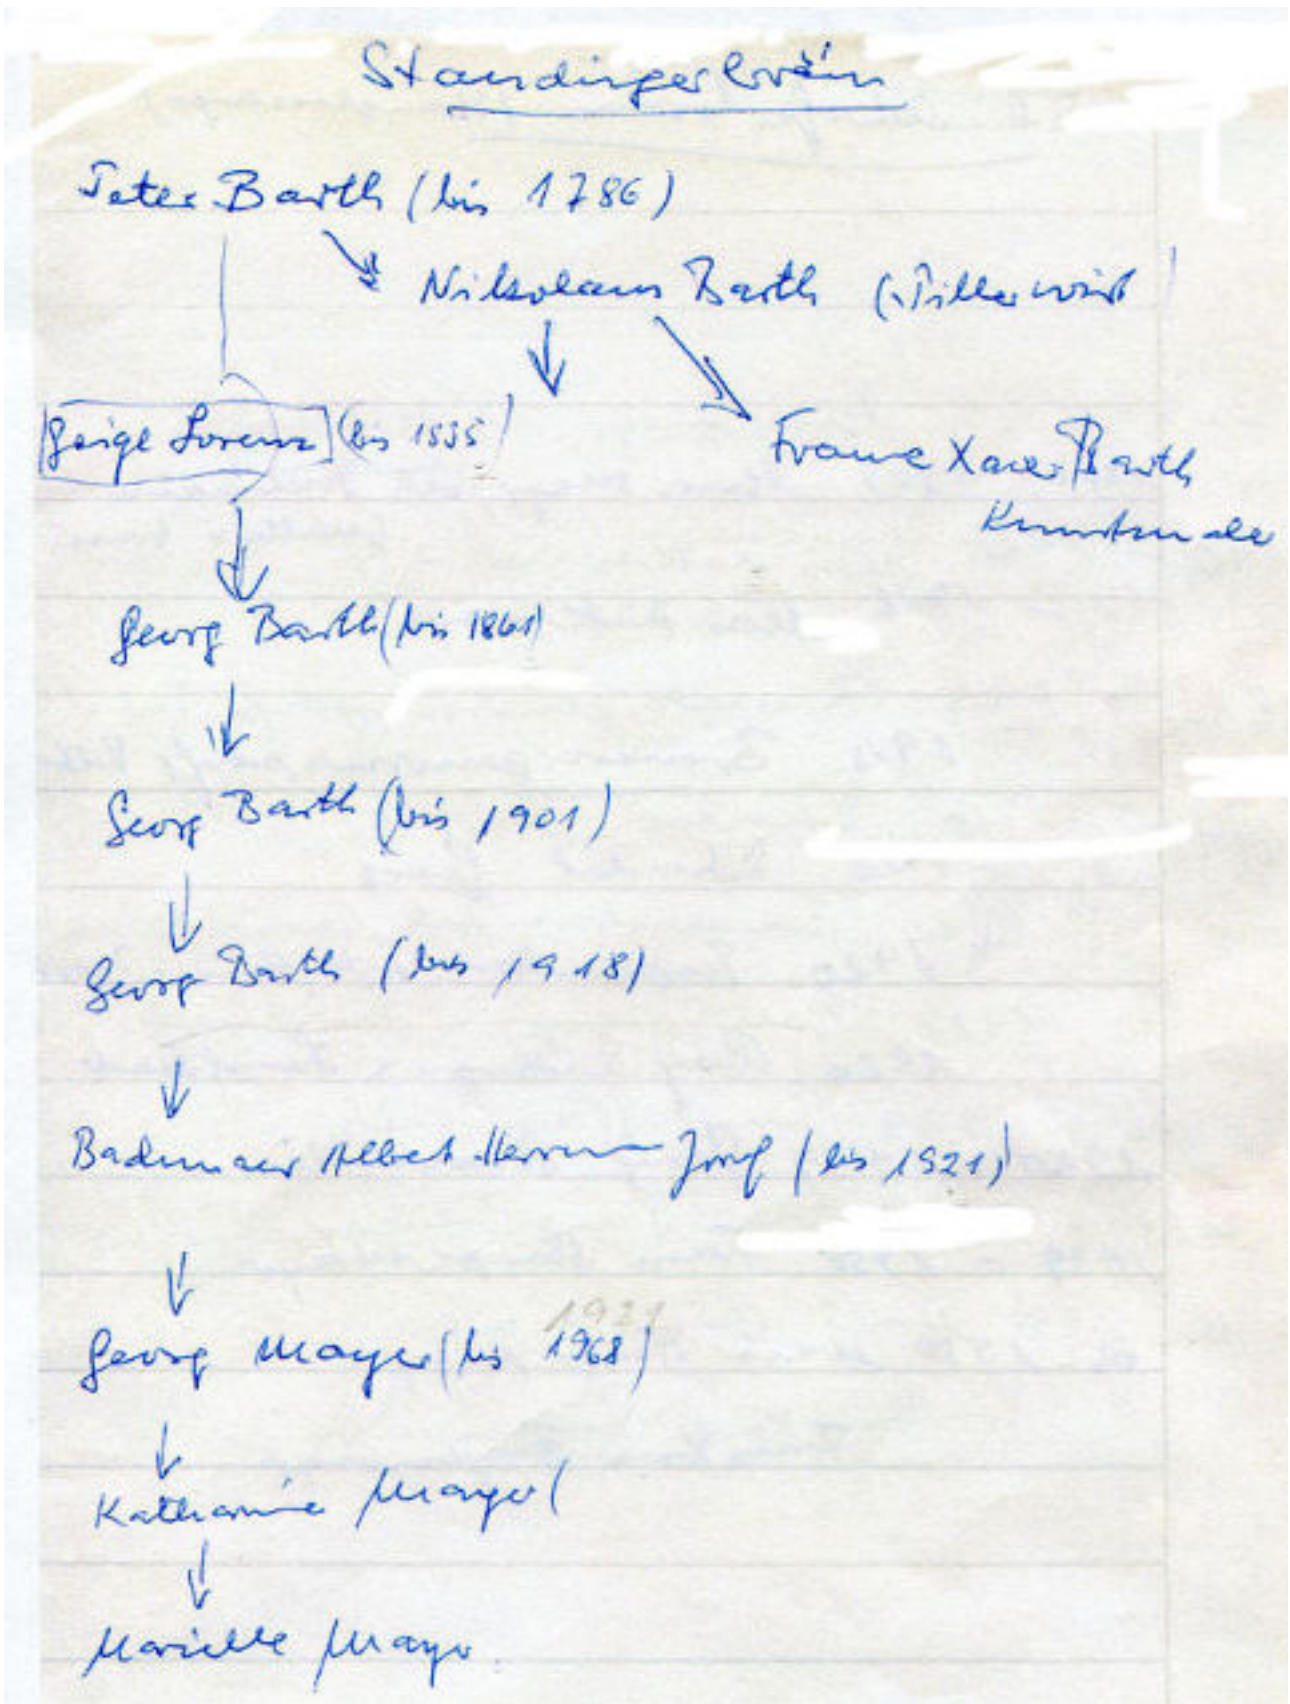 Peter Barth (bis 1786)
Nikolaus Barth (Tillerwirt
Geigl Lorenz (bis 1835)
Franz Xaver Barth
Kunstmaler
Georg Barth (bis 1861)
Georg Barth (bis 1901)
Georg Barth (bis 1918)
Albert Hermann Josef (bis 1921)
1921
Georg Mayer (bis 1968)
Katharina Mayer (
Mayer